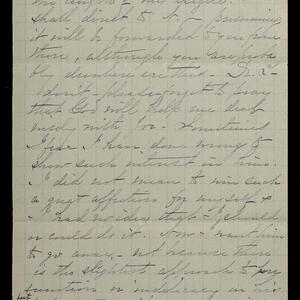 shall direct to N.Y. presuming
it will be forwarded to you from
there, although you are proba
bly elsewhere ere this.
don't - please forget to pray
that God will help me deal
wisely with Joe - Sometimes
I fear I have done wrong to
show such interest in him.
I did not mean to win such
a great affection for myself &
I had no idea that I should
or could do it. Now I want him
to go away, - not because there
is the slightest approach to pre
sumption or indelicacy in his